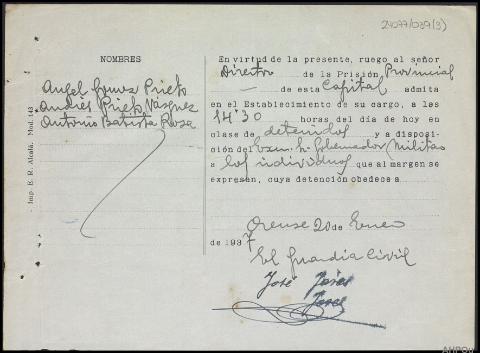 24077/039(3)
NOMBRES
Angel Gomez Prieto
Andrés Prieto Vázquez
Antonio Batista Rosa
Imp. E. R. Alcalá. Mod. 143
En virtud de la presente, ruego al señor
Director de la Prisión Provincial
de esta Capital admita
en el Establecimiento de su cargo, a las
14'30 horas del día de hoy en
clase de detenidos y a disposi-
ción del Exm. Sr. Gobernador Militar
a los individuos que al margen se
expresan, cuya detención obedece a
Orense 20 de Enero
de 1937
El Guardia Civil
José
AHPOu